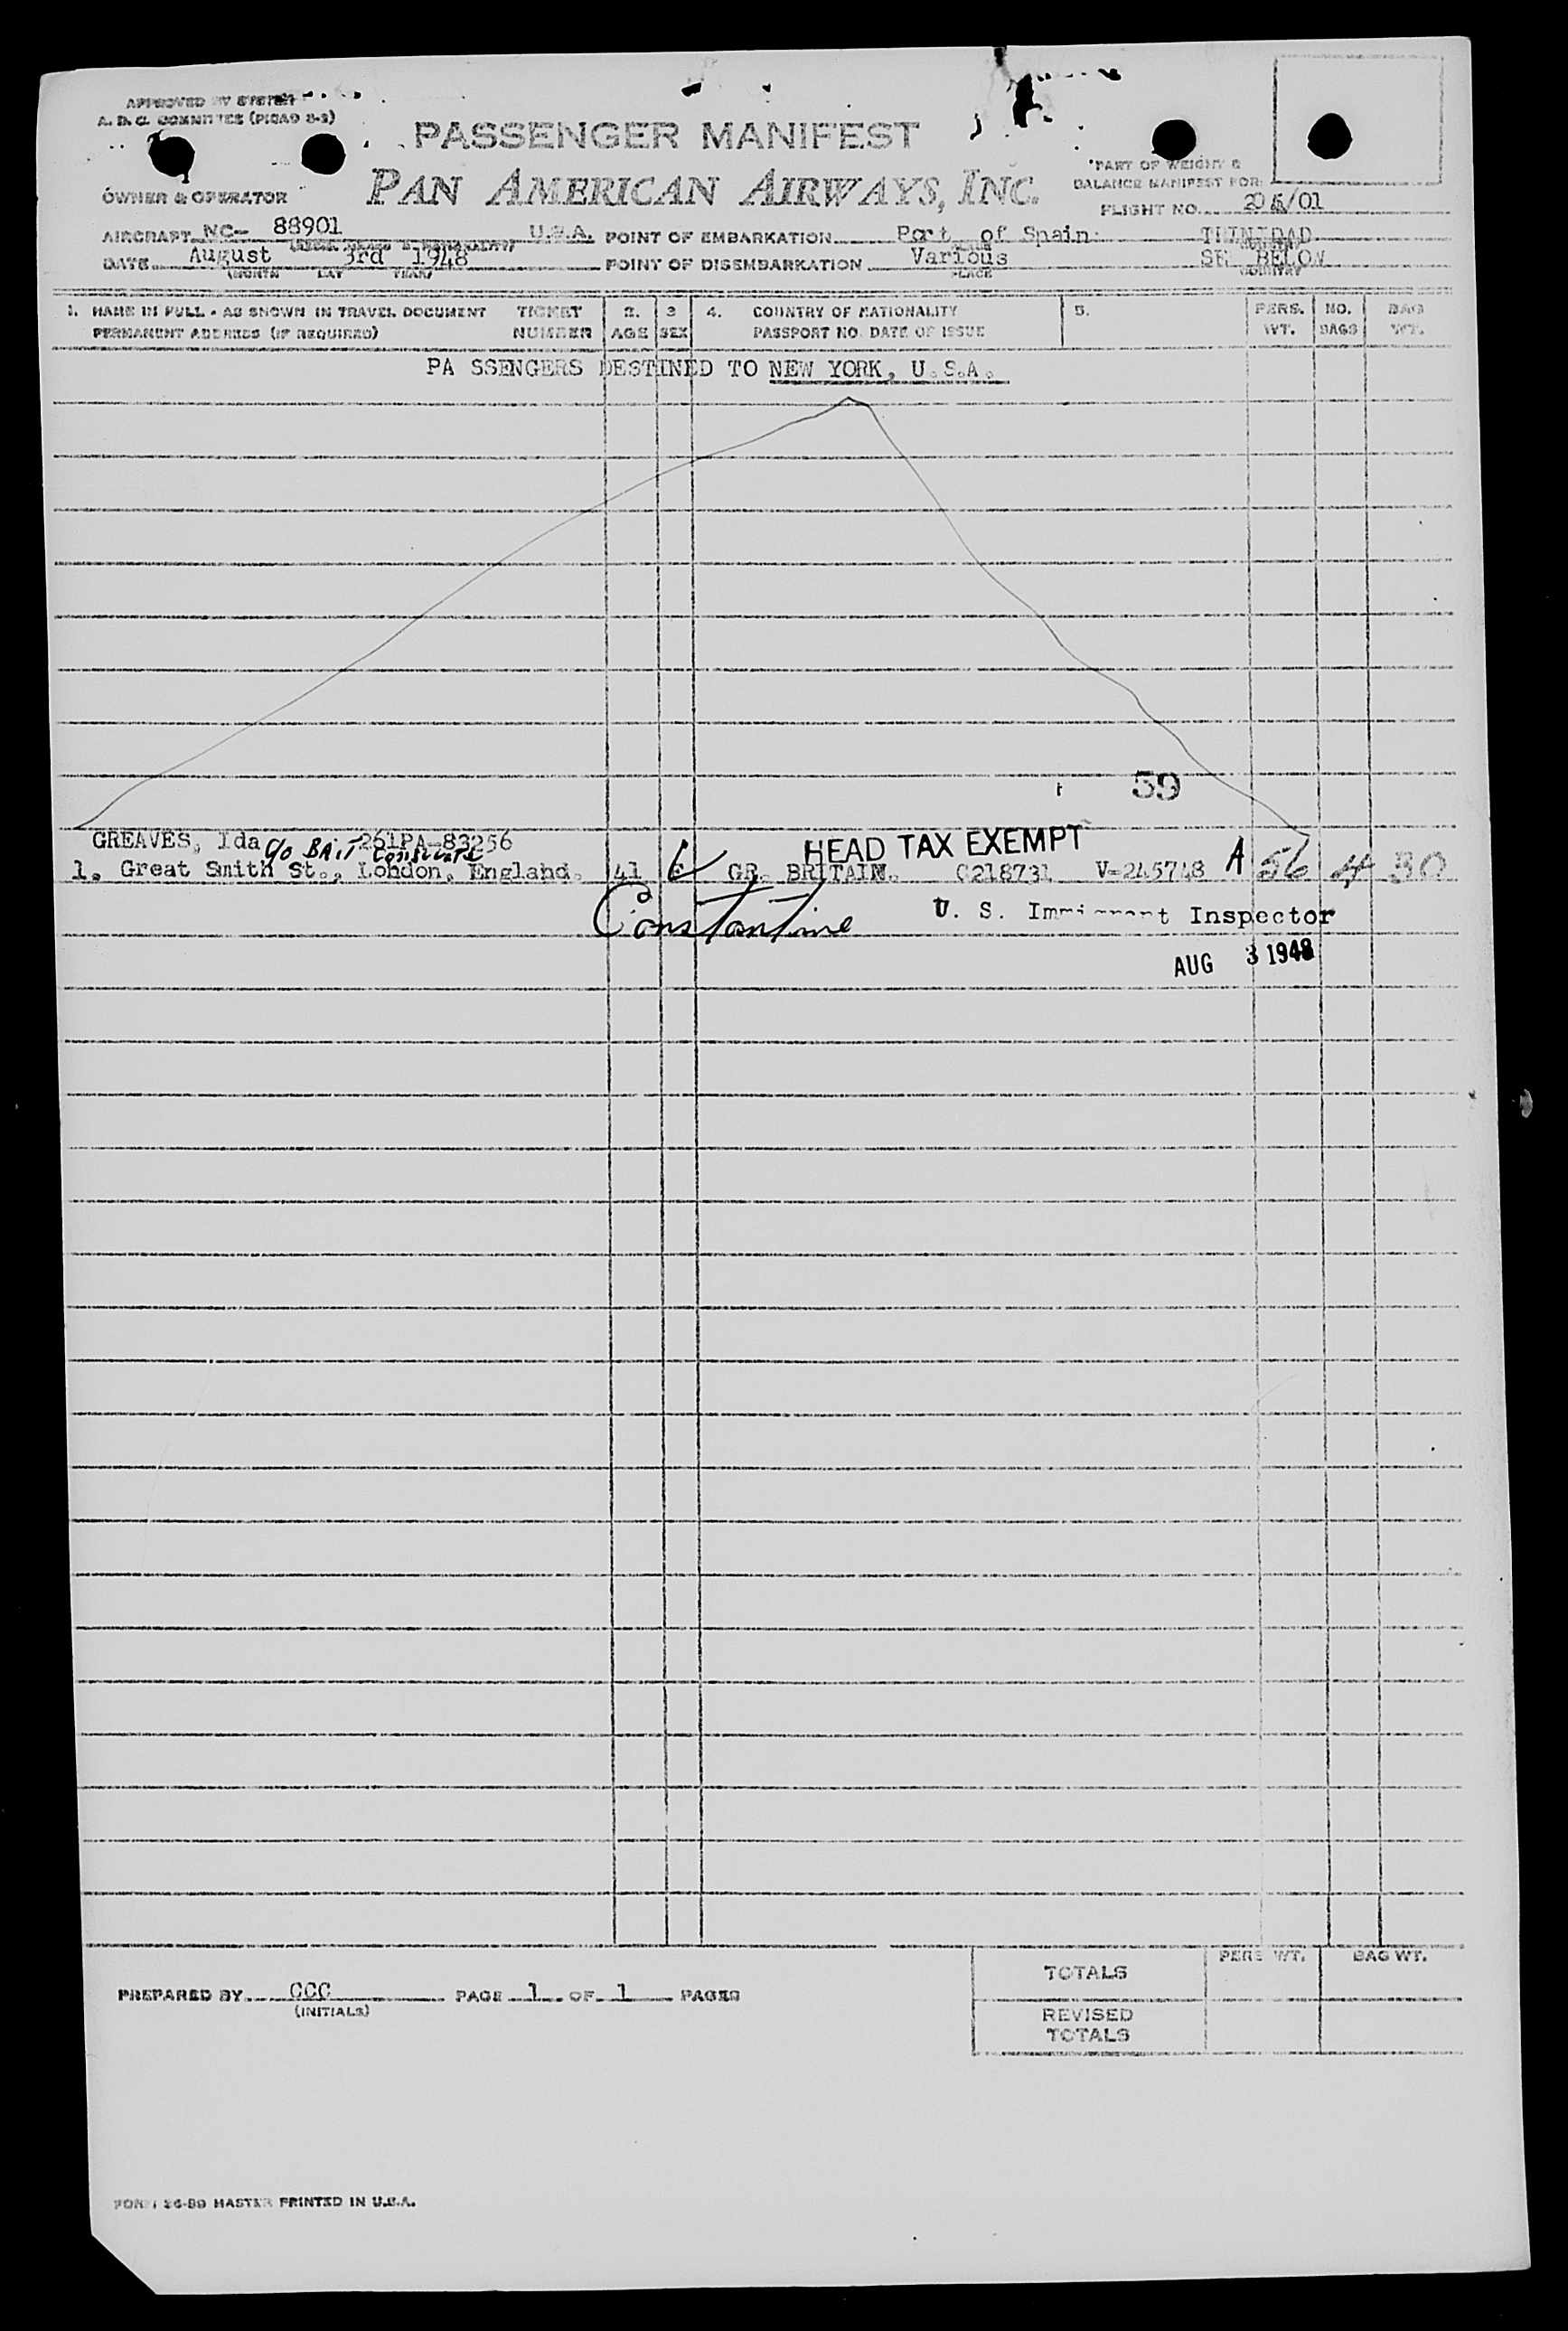 APPROVED BY SYSTEM
A. D. C. COMMITTEE (PICAO 8-2)
PASSENGER MANIFEST
PAN AMERICAN AIRWAYS, INC.
*PART OF WEIGHT &
BALANCE MANIFEST FOR:
OWNER & OPERATOR
FLIGHT NO. /01
AIRCRAFT NC- 88901 U.S.A. POINT OF EMBARKATION Port of Spain TRINIDAD
DATE August 3rd 1948 POINT OF DISEMBARKATION Various SE BELOW
(MONTH DAY YEAR) PLACE COUNTRY
1. NAME IN FULL - AS SHOWN IN TRAVEL DOCUMENT TICKET 2. 3 4. COUNTRY OF NATIONALITY 5. PERS. NO. BAG
PERMANENT ADDRESS (IF REQUIRED) NUMBER AGE SEX PASSPORT NO. DATE OF ISSUE WT. BAGS WT.
PA SSENGERS DESTINED TO NEW YORK, U.S.A.
59
GREAVES, Ida 261PA-83256
c/o BRIT Consulate HEAD TAX EXEMPT
1. Great Smith St., London, England. 41 F GR. BRITAIN. C218731 V-245748 A 56 4 30
Constantine U. S. Immigrant Inspector
AUG 3 1948
TOTALS PERS WT. BAG WT.
PREPARED BY CCC PAGE 1 OF 1 PAGES
(INITIALS)
REVISED
TOTALS
FORM 26-89 MASTER PRINTED IN U.S.A.